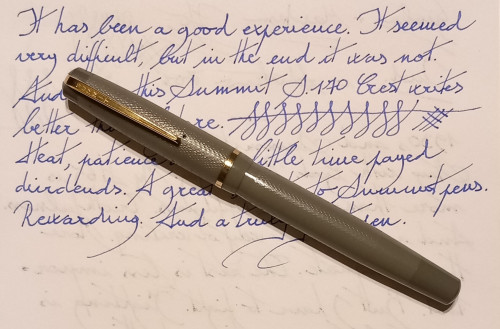 It has been a good experience. It seemed
very difficult, but in the end it was not.
And this Summit S.170 Crest writes
better
Heat, patience little time payed
dividends. A great to Summit pens.
Rewarding. And a